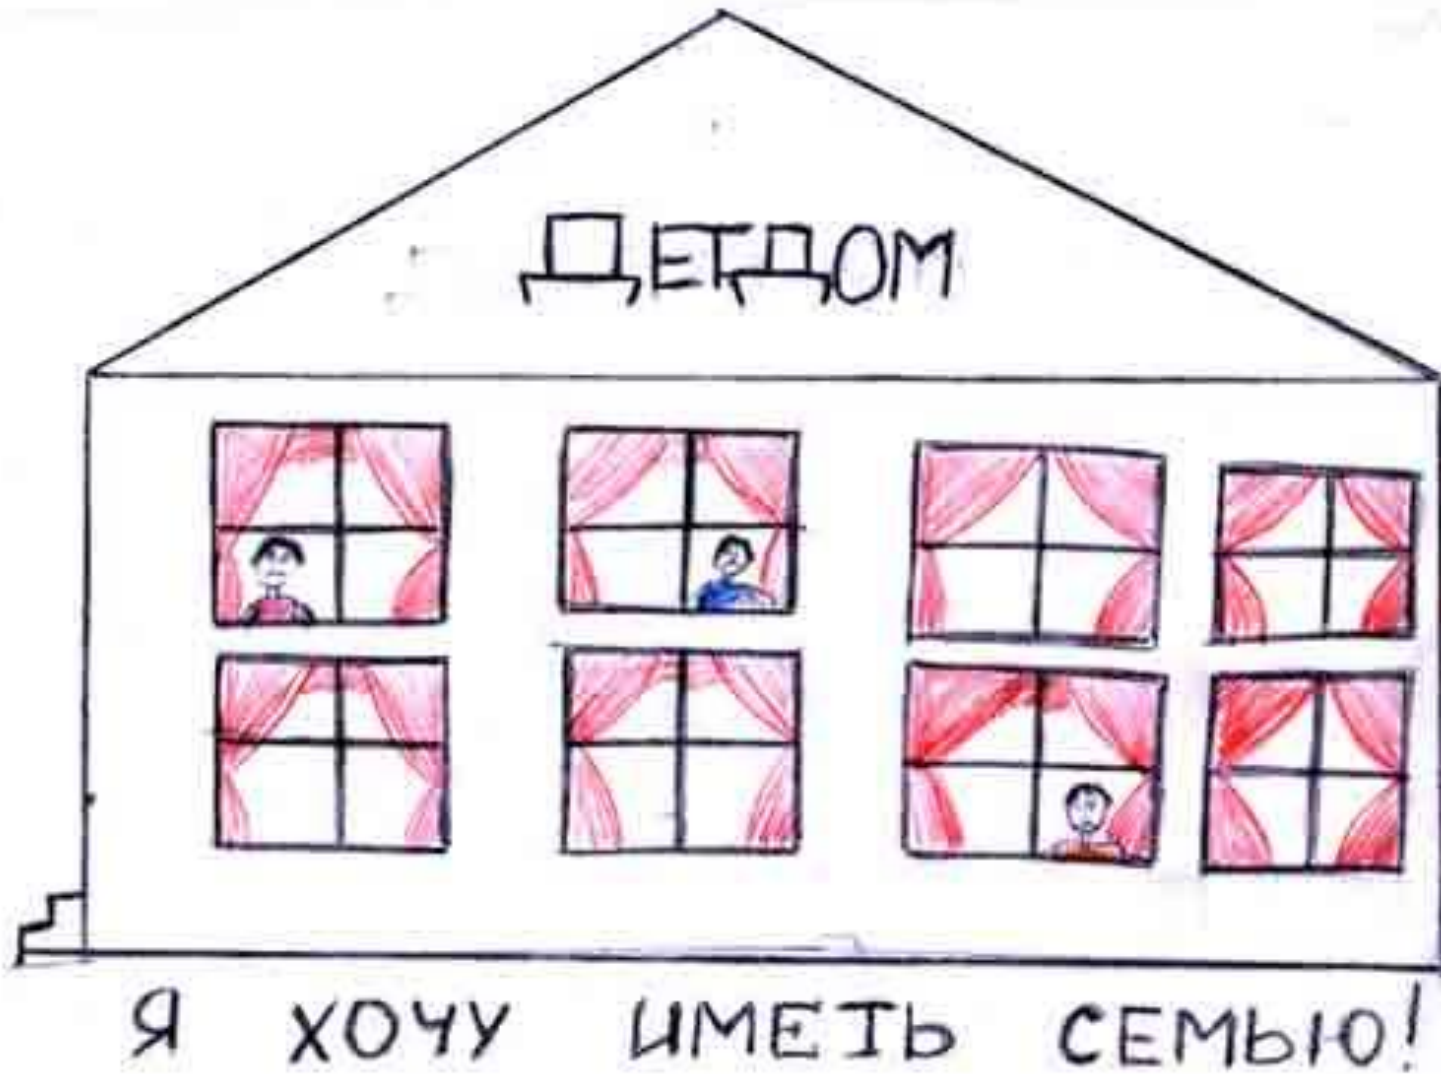 ДЕТДОМ
Я ХОЧУ ИМЕТЬ СЕМЬЮ!